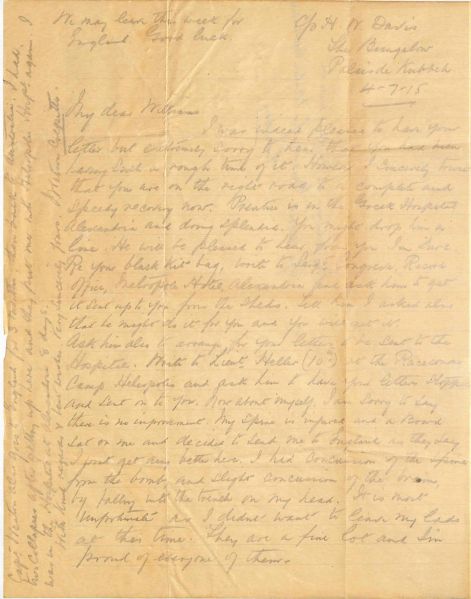 We may leave this week for
England. Good luck.
C/o H. W. Davis
The Bungalow
Palais de Kubbeh
4-7-15
My dear Williams
I was indeed pleased to have your
letter but extremely sorry to hear that you had been
having such a rough time of it. However I sincerely trust
that you are on the right road to a complete and
speedy recovery now. Prentice is in the Greek Hospital
Alexandria and doing splendid. You might drop him a
line. He will be pleased to hear from you I'm sure.
Re your black kit bag, write to Sergt Congreve, Record
Office, Metropole Hotel Alexandria and ask him to get
it sent up to you from the Sheds. Tell him I asked
that he might do it for you and you will get it.
Ask him also to arrange for your letters to be sent to the
Hospital. Write to Lieut. Heller (10th) at the Racecourse
Camp Heliopolis and ask him to have your letters stopped
and sent on to you. Now about myself, I am sorry to say
there is no improvement. My spine is injured and a Board
sat on me and decided to send me to England as they say
I wont get any better here. I had concussion of the spine
from the bomb, and slight concussion of the brain,
by falling into the trench on my head. It is most
"Unfortunate" as I didnt want to leave my lads
at this time. They are a fine lot and I'm
proud of everyone of them.
England for 3 months then back to Australia. I had
two collapses after getting up here and they put me into Heliopolis Hospl again. I
was in the Hospital at Alexandria 8 days.
With kind regards &amp; best wishes, Very sincerely yours,